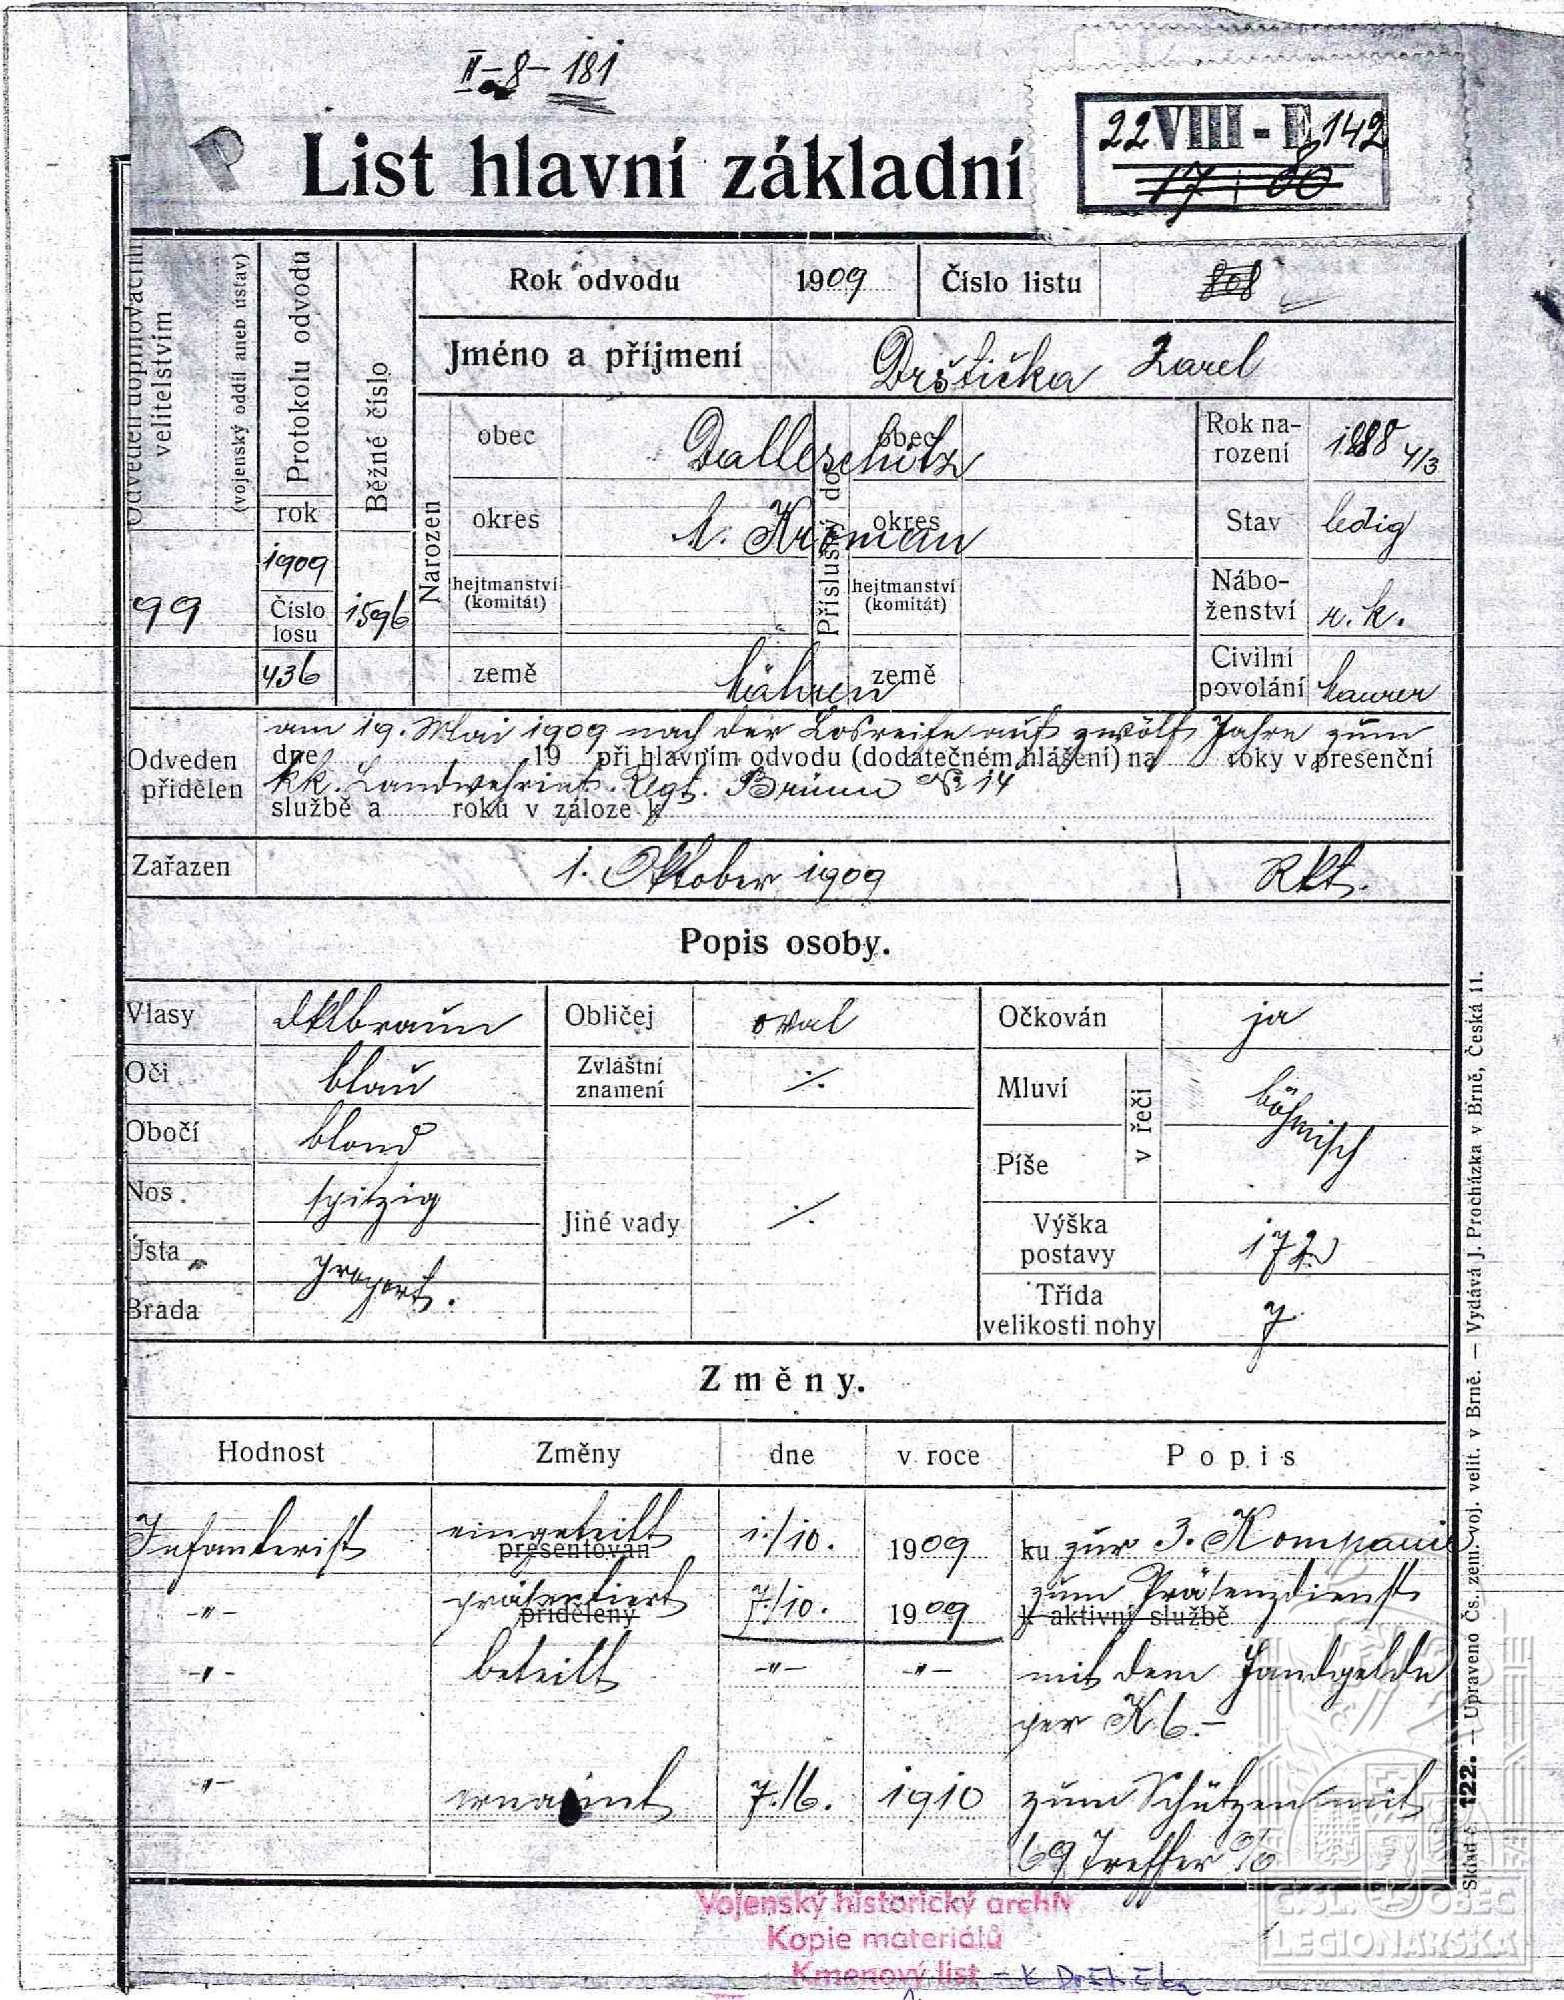 II-8-181
P
List hlavní základní
22 VIII-E 142
17 80
Odveden doplňovacím velitelstvím
(vojenský oddíl aneb ústav)
99
Protokolu odvodu
rok
1909
Číslo losu
436
Běžné číslo
1596
Rok odvodu 1909 Číslo listu 808
Jméno a příjmení Drštička Karel
Narozen
obec Dalleschitz
okres M. Kromau
hejtmanství (komitát)
země Mähren
Příslušný do
obec
okres
hejtmanství (komitát)
země
Rok narození 1888 4/3
Stav ledig
Náboženství r. k.
Civilní povolání Maurer
Odveden přidělen
am 19. Mai 1909 nach der Losreihe auf zwölf Jahre zum
dne 19 při hlavním odvodu (dodatečném hlášení) na roky v presenční
kk. Landwehrinf. Regt. Brünn № 14
službě a roků v záloze k
Zařazen 1. Oktober 1909 Rkt.
Popis osoby.
Vlasy dklbraun
Oči blau
Obočí blond
Nos spitzig
Ústa
Brada proport.
Obličej oval
Zvláštní znamení ⁒
Jiné vady ⁒
Očkován ja
Mluví
Píše
v řeči
böhmisch
Výška postavy 172
Třída velikosti nohy 7
Změny.
Hodnost Změny dne v roce Popis
Infanterist eingeteilt presentován 1./10. 1909 ku zur 3. Kompanie
-"- präsentiert přidělený 7./10. 1909 zum Präsenzdienst k aktivní službě
-"- beteilt -"- -"- mit dem Handgelde
per K 6.-
-"- ernannt 7./6. 1910 zum Schützen mit
69 Treffer %
Sklad č. 122. — Upraveno Čs. zem. voj. velit. v Brně. — Vydává J. Procházka v Brně, Česká 11.
Vojenský historický archiv
Kopie materiálů
Kmenový list - K Drštička
ČSL. OBEC
LEGIONÁŘSKÁ